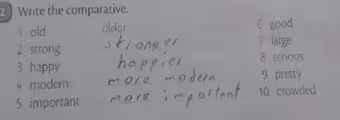 2 Write the comparative.
1 old older
2 strong stronger
3 happy happier
4 modern more modern
5 important more important
6 good
7 large
8 serious
9 pretty
10 crowded